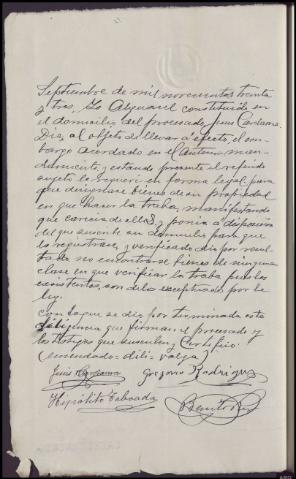 Septiembre de mil novecientos treinta
y tres, Yo Alguacil constituido en
el domicilio del procesado Juis
Diz, al objeto de llevar a efecto el em-
bargo acordado en el anterior man-
damiento y estando presente el referido
sujeto le requerí en forma legal para
que designase bienes de su propiedad
en que hacer la traba, manifestando
que carecía de ellos, y ponía a disposición
del que suscribe su domicilio para que
lo registrase, y verificado dio por resul-
tado no encontrarse bienes de ninguna
clase en que verificar la traba pues los
existentes, son de lo exceptuado por la
ley.
Con lo que se dio por terminada esta
diligencia que firman el procesado y
los testigos que suscriben y Certifico
enmendado: dili: valga
Gregorio Rodriguez
Hipólito Taboada
Benito